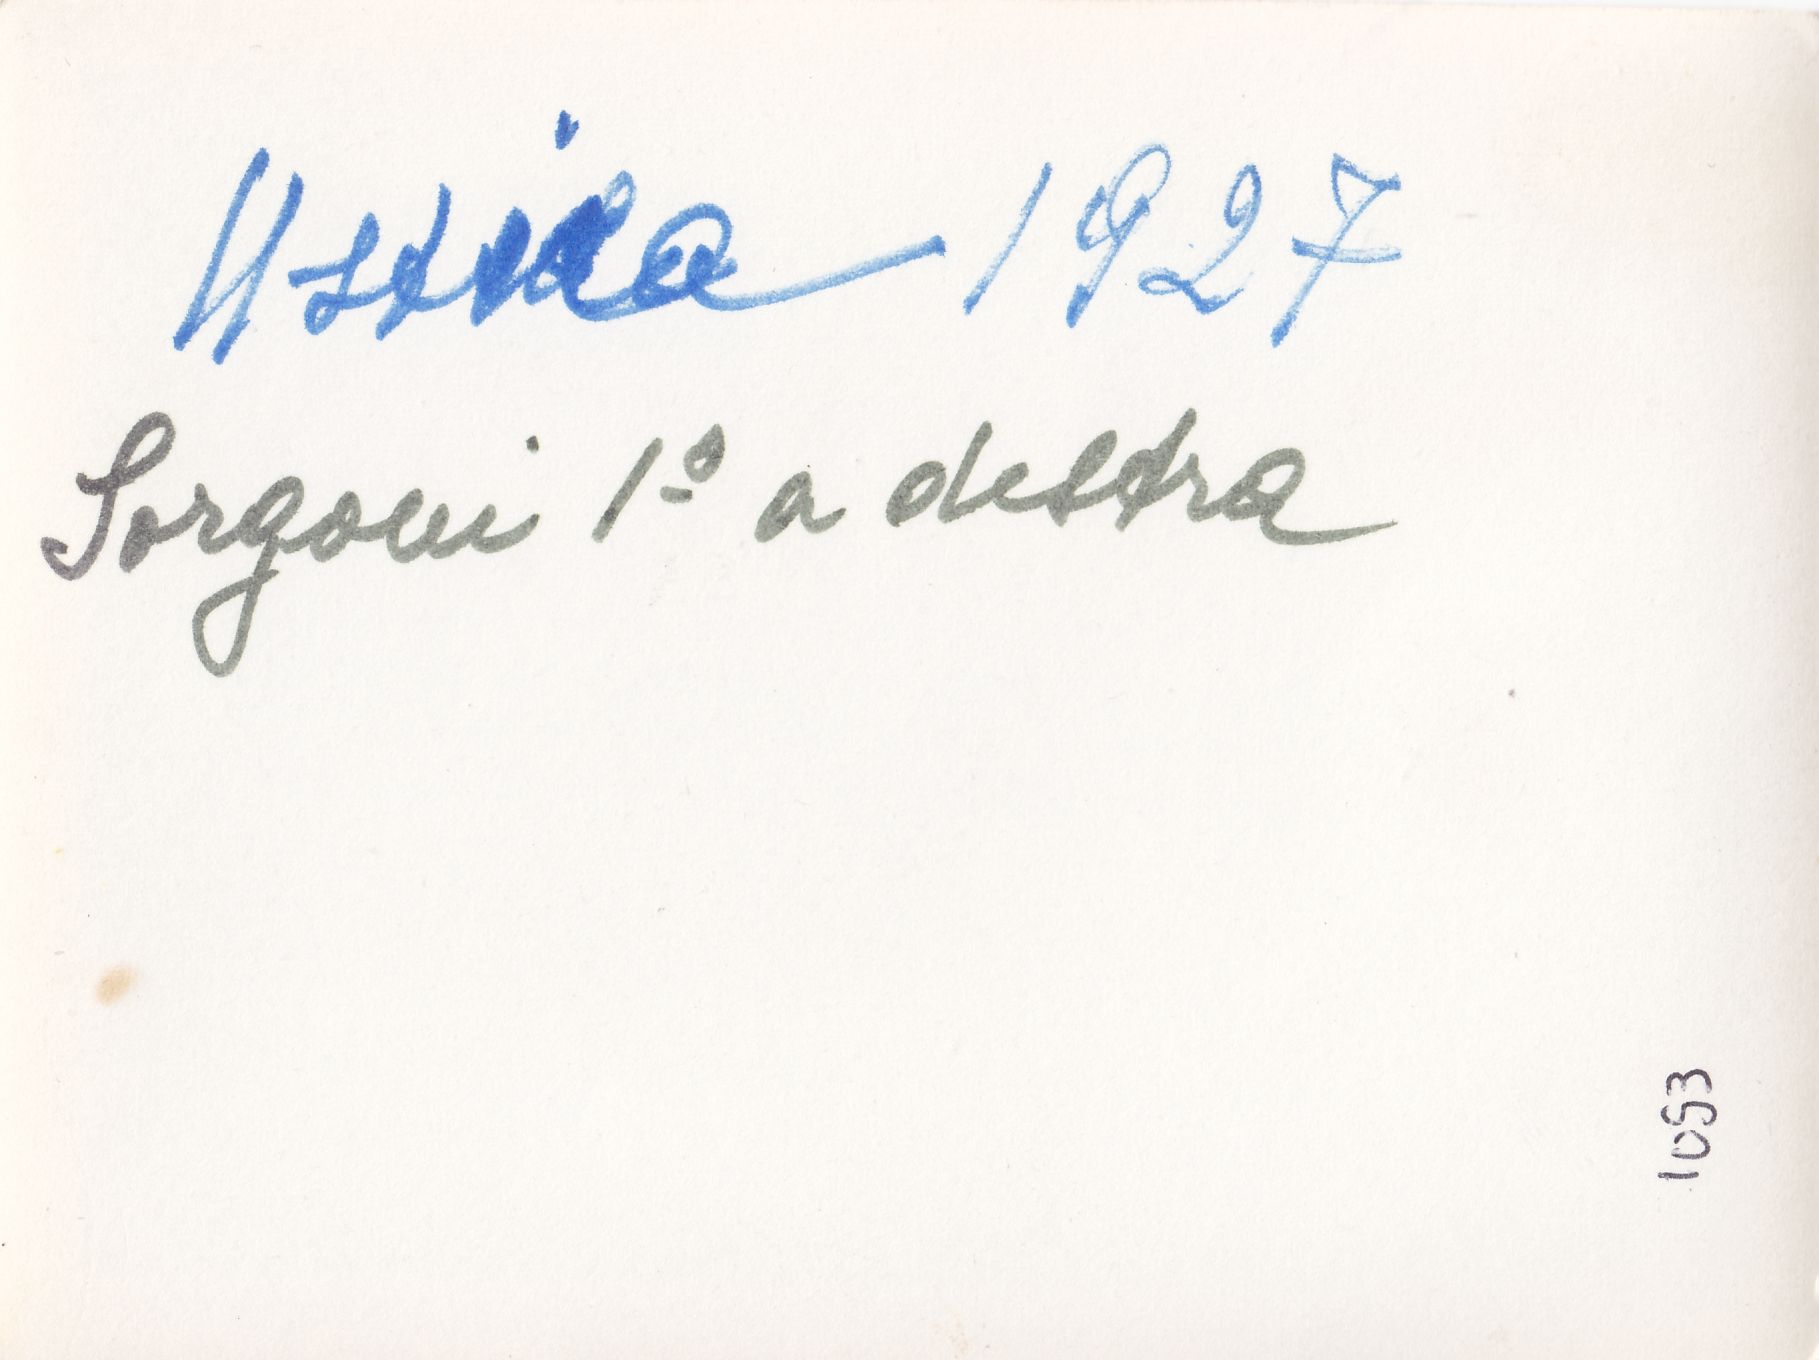 Ustica 1927
Sorgoni 1º a destra
1053